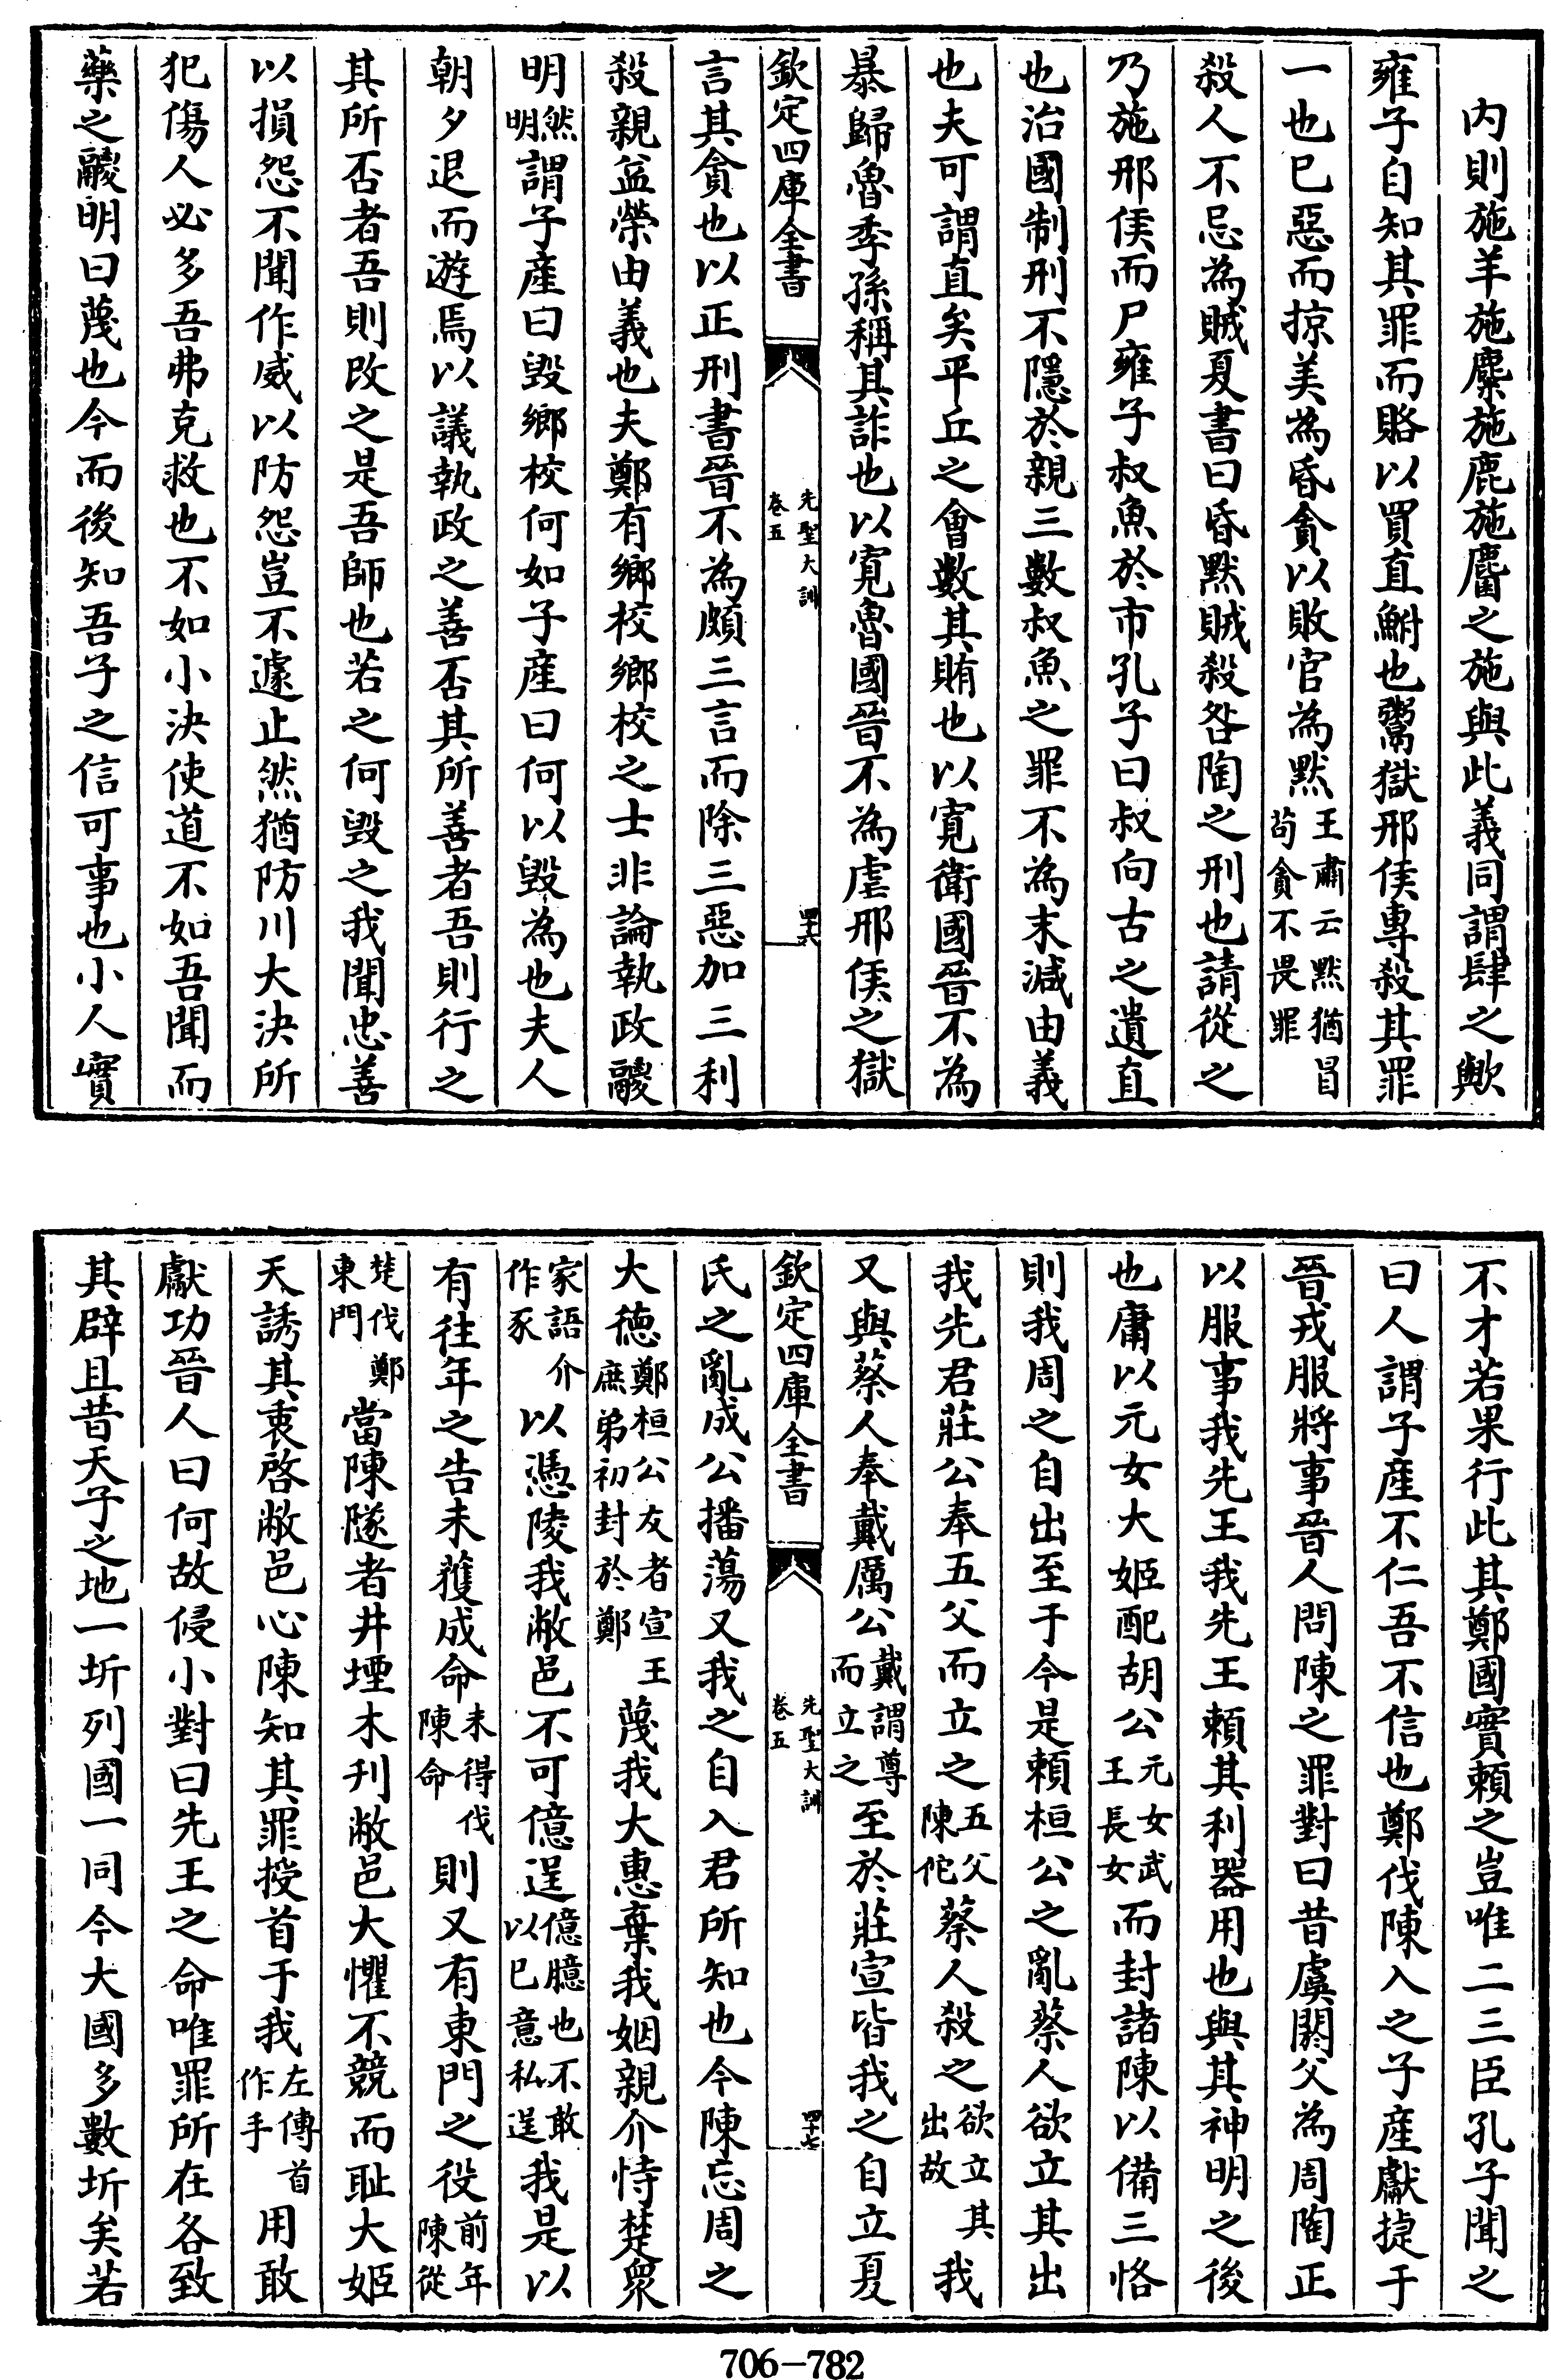 内則施羊施麋施鹿施麕之施與此義同謂肆之歟
雍子自知其罪而賂以買直鮒也鬻獄邢侯專殺其罪
一也已惡而掠美為昏貪以敗官為默王肅云默猶冒苟貪不畏罪
殺人不忌為賊夏書曰昏默賊殺咎陶之刑也請從之
乃施邢侯而尸雍子叔魚於市孔子曰叔向古之遺直
也治國制刑不隱於親三數叔魚之罪不為末減由義
也夫可謂直矣平丘之會數其賄也以寬衛國晉不為
暴歸魯季孫稱其詐也以寬魯國晉不為虐邢侯之獄
欽定四庫全書 先聖大訓 卷五 四十六
言其貪也以正刑書晉不為頗三言而除三惡加三利
殺親益榮由義也夫鄭有鄉校鄉校之士非論執政鬷
明然明謂子產曰毀鄉校何如子產曰何以毀為也夫人
朝夕退而遊焉以議執政之善否其所善者吾則行之
其所否者吾則改之是吾師也若之何毀之我聞忠善
以損怨不聞作威以防怨豈不遽止然猶防川大決所
犯傷人必多吾弗克救也不如小決使道不如吾聞而
藥之鬷明曰蔑也今而後知吾子之信可事也小人實
不才若果行此其鄭國實賴之豈唯二三臣孔子聞之
曰人謂子產不仁吾不信也鄭伐陳入之子產獻捷于
晉戎服將事晉人問陳之罪對曰昔虞閼父為周陶正
以服事我先王我先王賴其利器用也與其神明之後
也庸以元女大姬配胡公元女武王長女而封諸陳以備三恪
則我周之自出至于今是賴桓公之亂蔡人欲立其出
我先君莊公奉五父而立之五父陳佗蔡人殺之欲立其出故我
又與蔡人奉戴厲公戴謂尊而立之至於莊宣皆我之自立夏
欽定四庫全書 先聖大訓 卷五 四十七
氏之亂成公播蕩又我之自入君所知也今陳忘周之
大德鄭桓公友者宣王庶弟初封於鄭蔑我大惠棄我姻親介恃楚眾
家語介作豕以憑陵我敝邑不可億逞億臆也不敢以已意私逞我是以
有往年之告未獲成命未得伐陳命則又有東門之役前年陳從
楚伐鄭東門當陳隧者井堙木刋敝邑大懼不競而耻大姬
天誘其衷啓敝邑心陳知其罪授首于我左傳首作手用敢
獻功晉人曰何故侵小對曰先王之命唯罪所在各致
其辟且昔天子之地一圻列國一同今大國多數圻矣若
706-782